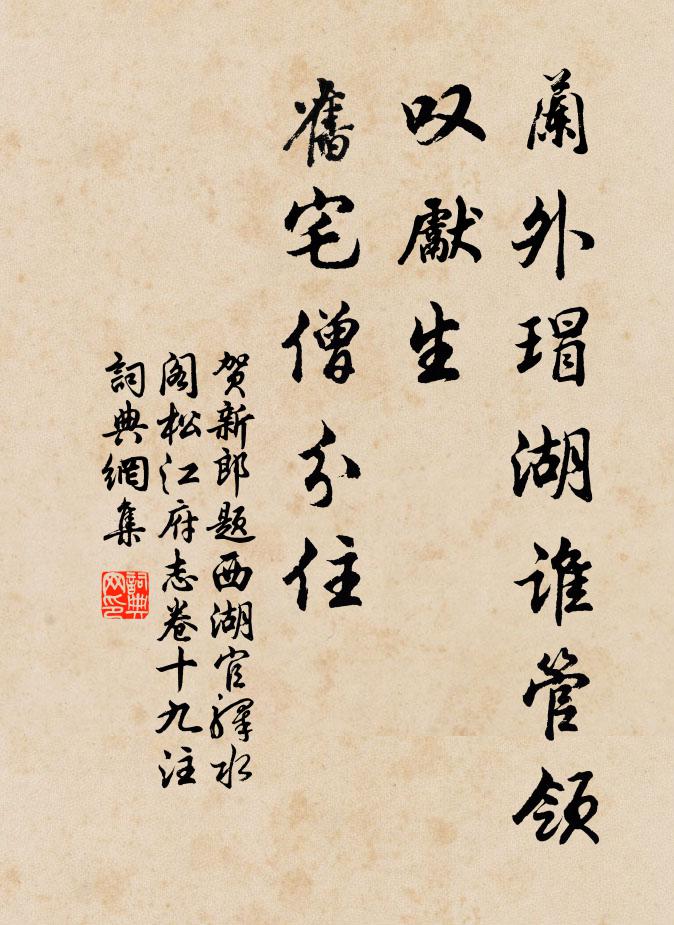 蘭外瑁湖谁管領
叹獻生
舊宅僧分住
贺新郎题西湖官驛水
阁松江府志卷十九注
詞典網集
詞典網印